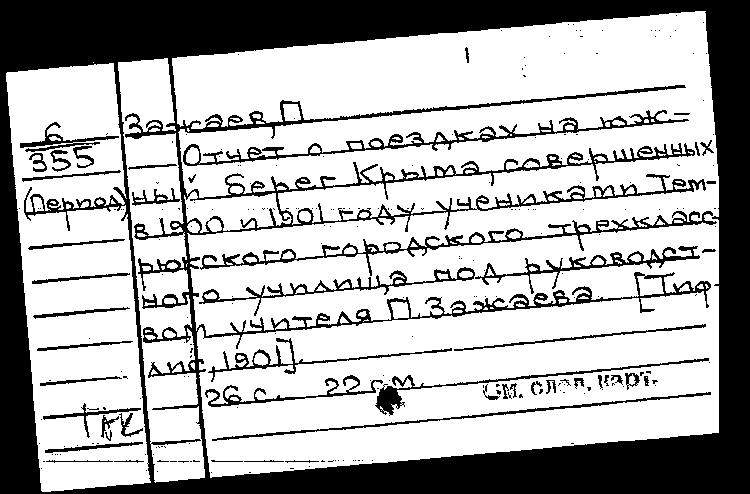 6
355
(Период)
Зажаев, П
Отчет о поездках на юж-
ный берег Крыма, совершенных
в 1900 и 1901 году учениками Тем-
рюкского городского трехкласс
ного училища под руководст-
вом учителя П. Зажаева. [Тиф-
лис, 1901].
26 с. 22 см.
См. след. карт.